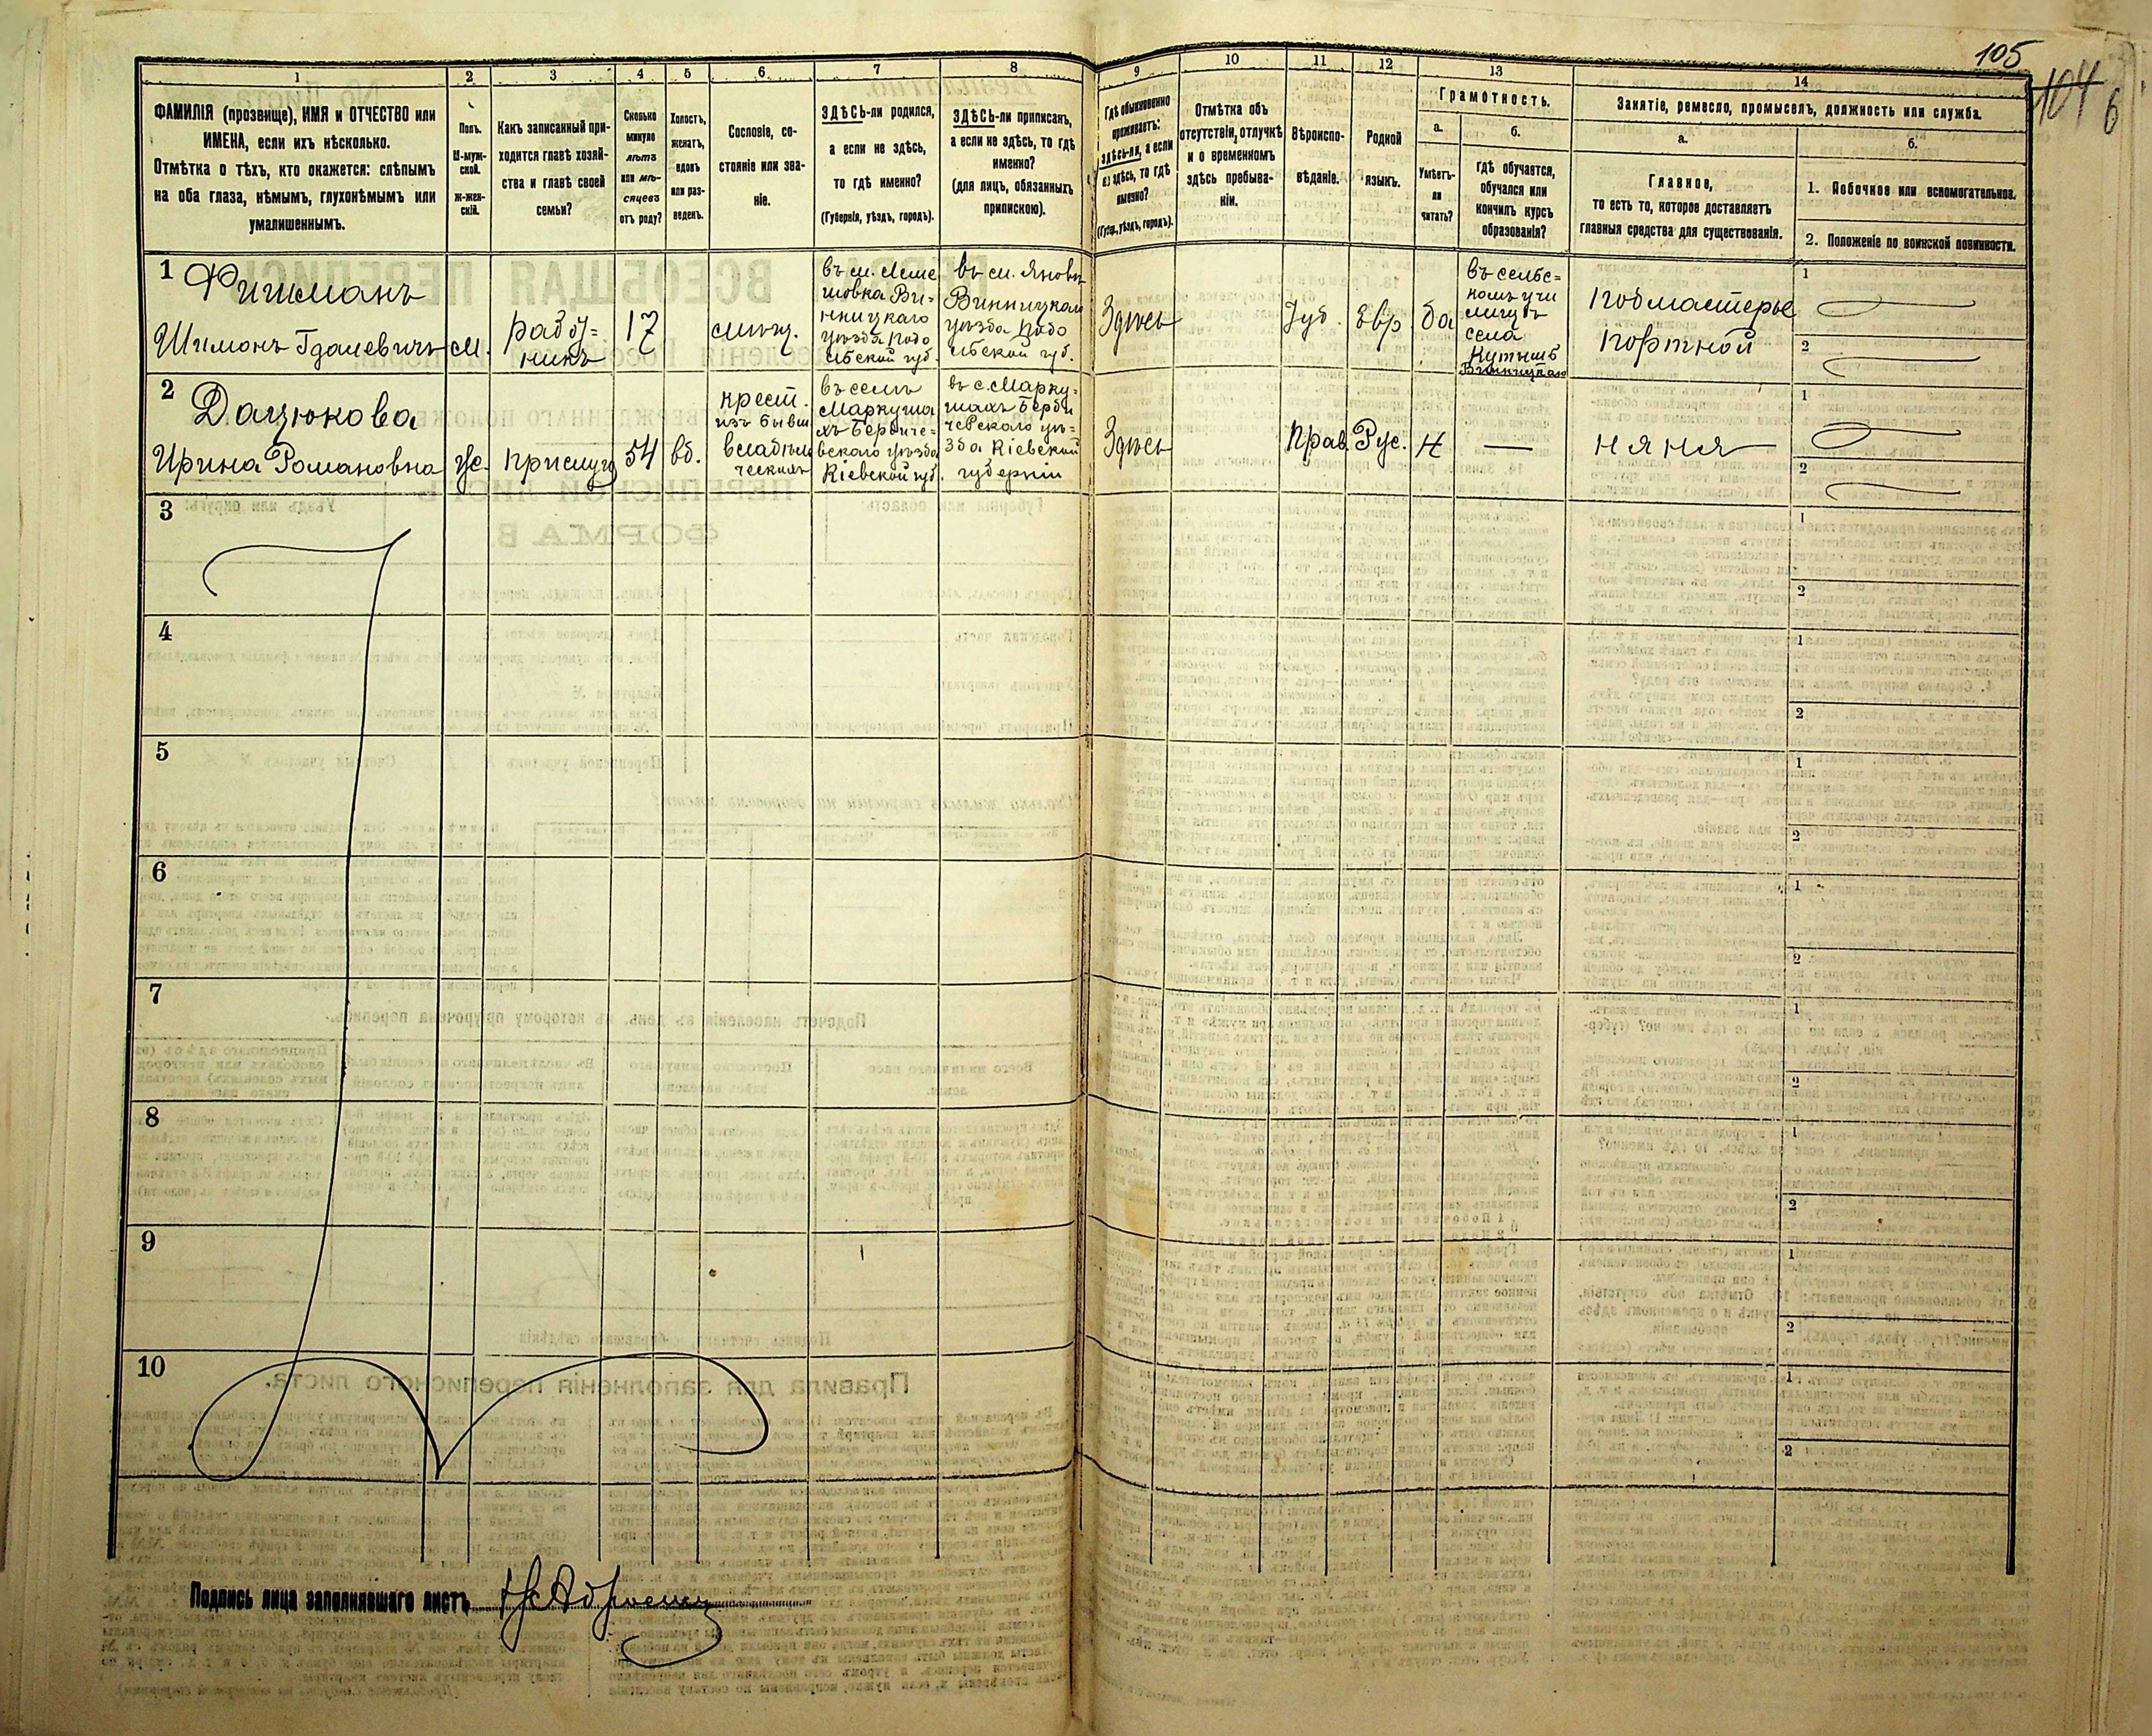 105
104
6
1
2
3
4
5
6
7
8
9
10
11
12
13
14
ФАМИЛІЯ (прозвище), ИМЯ и ОТЧЕСТВО или
ИМЕНА, если ихъ нѣсколько.
Отмѣтка о тѣхъ, кто окажется: слѣпымъ
на оба глаза, нѣмымъ, глухонѣмымъ или
умалишеннымъ.
Полъ.
М-муж-
ской.
Ж-жен-
скій.
Какъ записанный при-
ходится главѣ хозяй-
ства и главѣ своей
семьи?
Сколько
минуло
лѣтъ
или мѣ-
сяцевъ
отъ роду?
Холостъ,
женатъ,
вдовъ
или раз-
веденъ.
Сословіе, со-
стояніе или зва-
ніе.
ЗДѢСЬ-ли родился,
а если не здѣсь,
то гдѣ именно?
(Губернія, уѣздъ, городъ).
ЗДѢСЬ-ли приписанъ,
а если не здѣсь, то гдѣ
именно?
(для лицъ, обязанныхъ
припискою).
Гдѣ обыкновенно
проживаетъ:
здѣсь-ли, а если
не здѣсь, то гдѣ
именно?
(Губер., уѣздъ, городъ).
Отмѣтка объ
отсутствіи, отлучкѣ
и о временномъ
здѣсь пребыва-
ніи.
Вѣроиспо-
вѣданіе.
Родной
языкъ.
Грамотность.
а.
Умѣетъ-
ли
читать?
б.
гдѣ обучается,
обучался или
кончилъ курсъ
образованія?
Занятіе, ремесло, промыселъ, должность или служба.
а.
Главное,
то есть то, которое доставляетъ
главныя средства для существованія.
б.
1. Побочное или вспомогательное.
2. Положеніе по воинской повинности.
1
Фишманъ
Шимонъ Гдалевичъ
м.
работ-
никъ
17
мѣщ.
Винницкаго
уѣзда Подо
льской губ.
въ м. Яновъ
Винницкаго
уѣзда Подо
льской губ.
Здѣсь
Іуд.
Евр
да
въ сельс-
комъ учи
лищѣ
села
Винницкаго
подмастерье
портной
1
2
2
Дацюкова
Ирина Романовна
ж.
прислуга
54
вд.
крест.
изъ бывш
владѣль
ческихъ
въ селѣ
Маркуша
хъ Бердиче-
вскаго уѣзда
Кіевской губ.
въ с. Марку-
шахъ Берди
чевскаго уѣ-
зда Кіевской
губерніи
Здѣсь
Прав.
Рус.
н
—
няня
1
2
3
1
2
4
1
2
5
1
2
6
1
2
7
1
2
8
1
2
9
1
2
10
1
2
Подпись лица заполнявшаго листъ